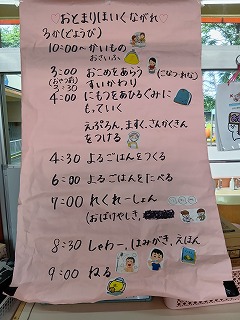 ♡おとまりほいくながれ♡
3か(どようび)
10:00~かいもの
おさいふ
3:00 おこめをあらう
(おやつ前) すいかわり
3:30
4:00 にもつをあひるぐみに
もっていく
えぷろん、ますく、さんかくきん
をつける
4:30 よるごはんをつくる
6:00 よるごはんをたべる
7:00 れくれーしょん
(おばけやしき、
8:30 しゃわー、はみがき、えほん
9:00 ねる